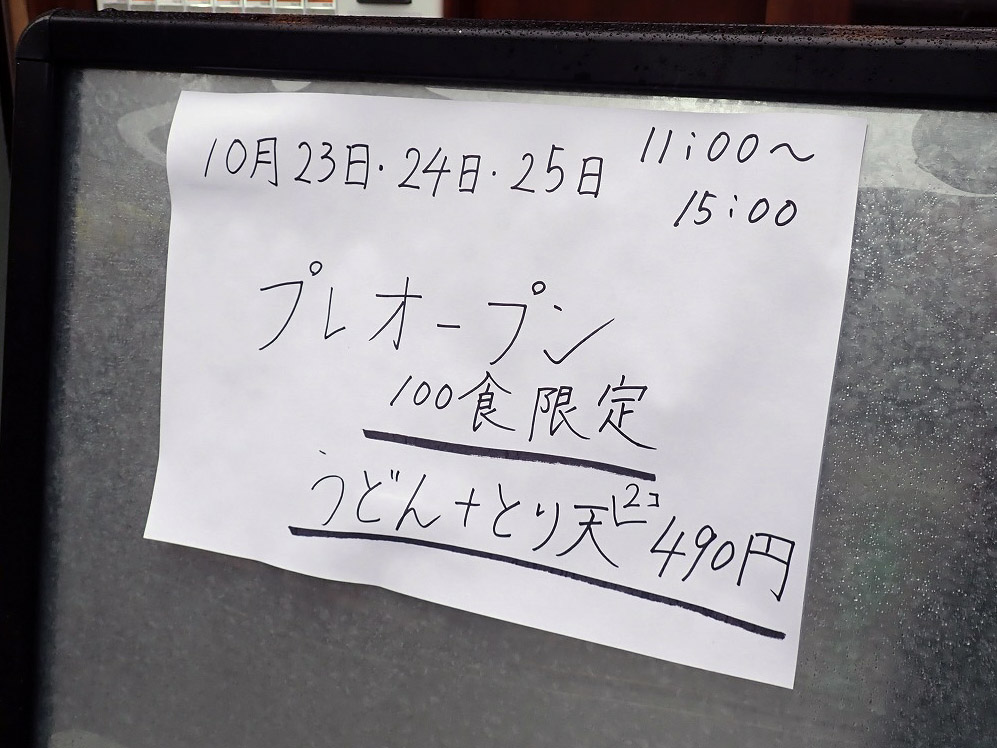 10月23日・24日・25日 11:00〜
15:00
プレオープン
100食限定
うどん+とり天2コ 490円